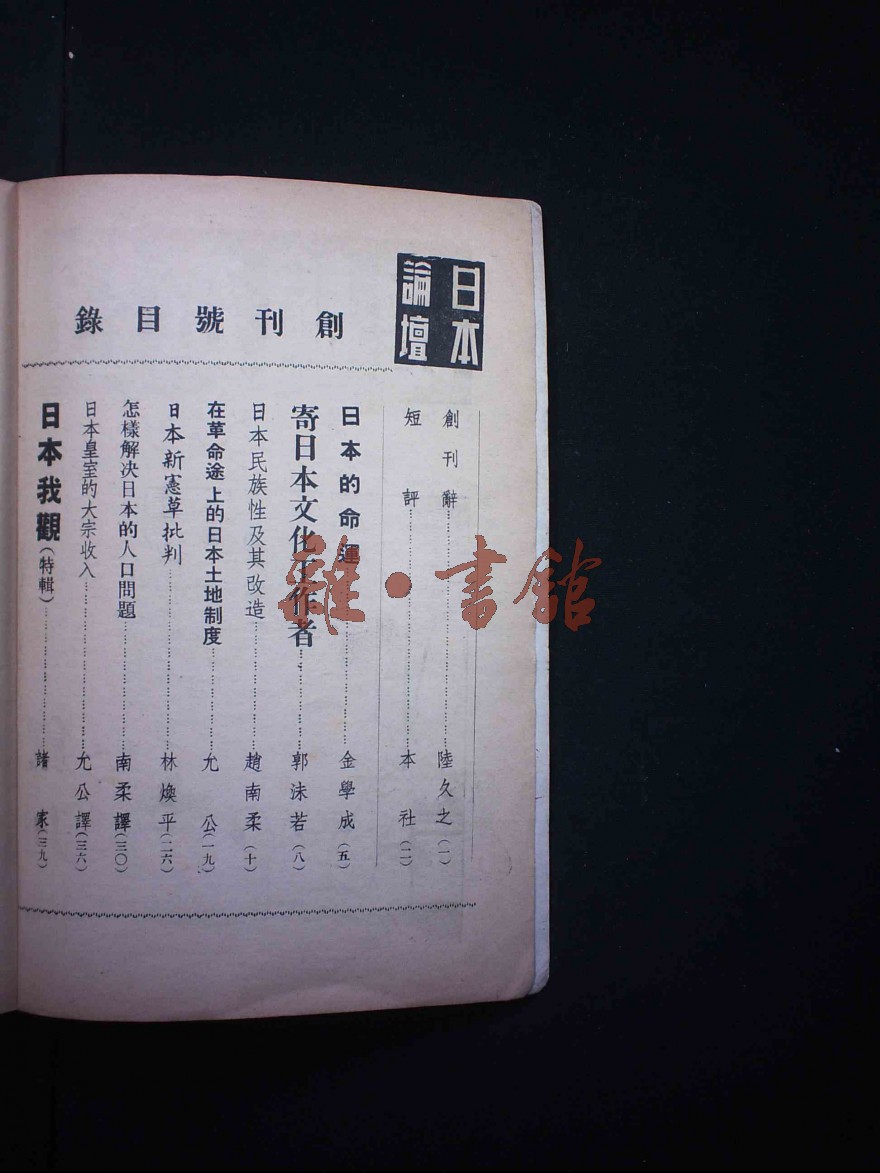 日本
論壇
創刊號目錄
創刊辭……陸久之(一)
短評……本社(二)
日本的命運……金學成(五)
寄日本文化工作者……郭沫若(八)
日本民族性及其改造……趙南柔(十)
在革命途上的日本土地制度……允公(一九)
日本新憲草批判……林煥平(二六)
怎樣解決日本的人口問題……南柔譯(三〇)
日本皇室的大宗收入……允公譯(三六)
日本我觀(特輯)……諸家(三九)
雜·書館